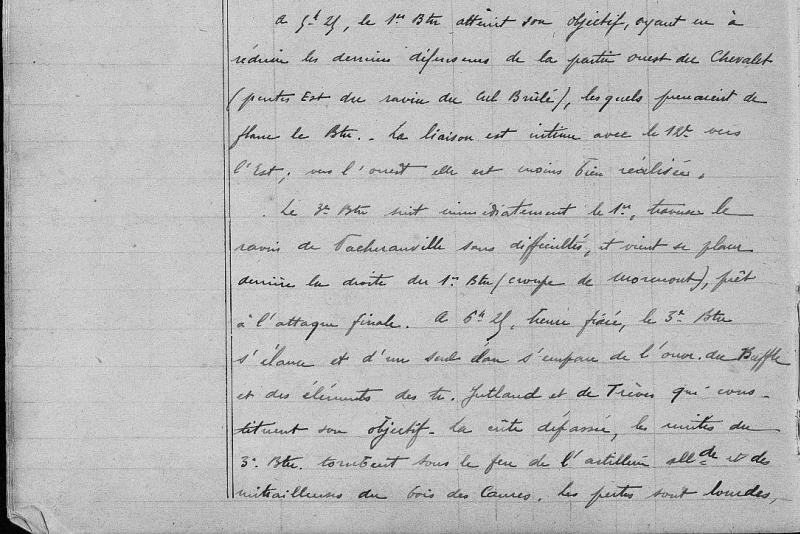 A 5h 25, le 1er Btn atteint son objectif, ayant eu à
réduire les derniers défenseurs de la partie ouest du Chevalet
(pentes Est du ravin du Cul Brûlé), lesquels prenaient de
flanc le Btn. - La liaison est intime avec le 12e vers
l'Est; vers l'ouest elle est moins bien réalisée.
Le 3e Btn suit immédiatement le 1er, traverse le
ravin de Vacherauville sans difficultés, et vient se placer
derrière la droite du 1er Btn (croupe de Mormont), prêt
à l'attaque finale. A 6h 25, heure fixée, le 3e Btn
s'élance et d'un seul élan s'empare de l'ouvr. du Buffle
et des éléments des tr. Jutland et de Trèves qui cons-
tituent son objectif - La crête dépassée, les unités du
3e Btn. tombent sous le feu de l'artillerie allde et des
mitrailleuses du bois des Caures. Les pertes sont lourdes,